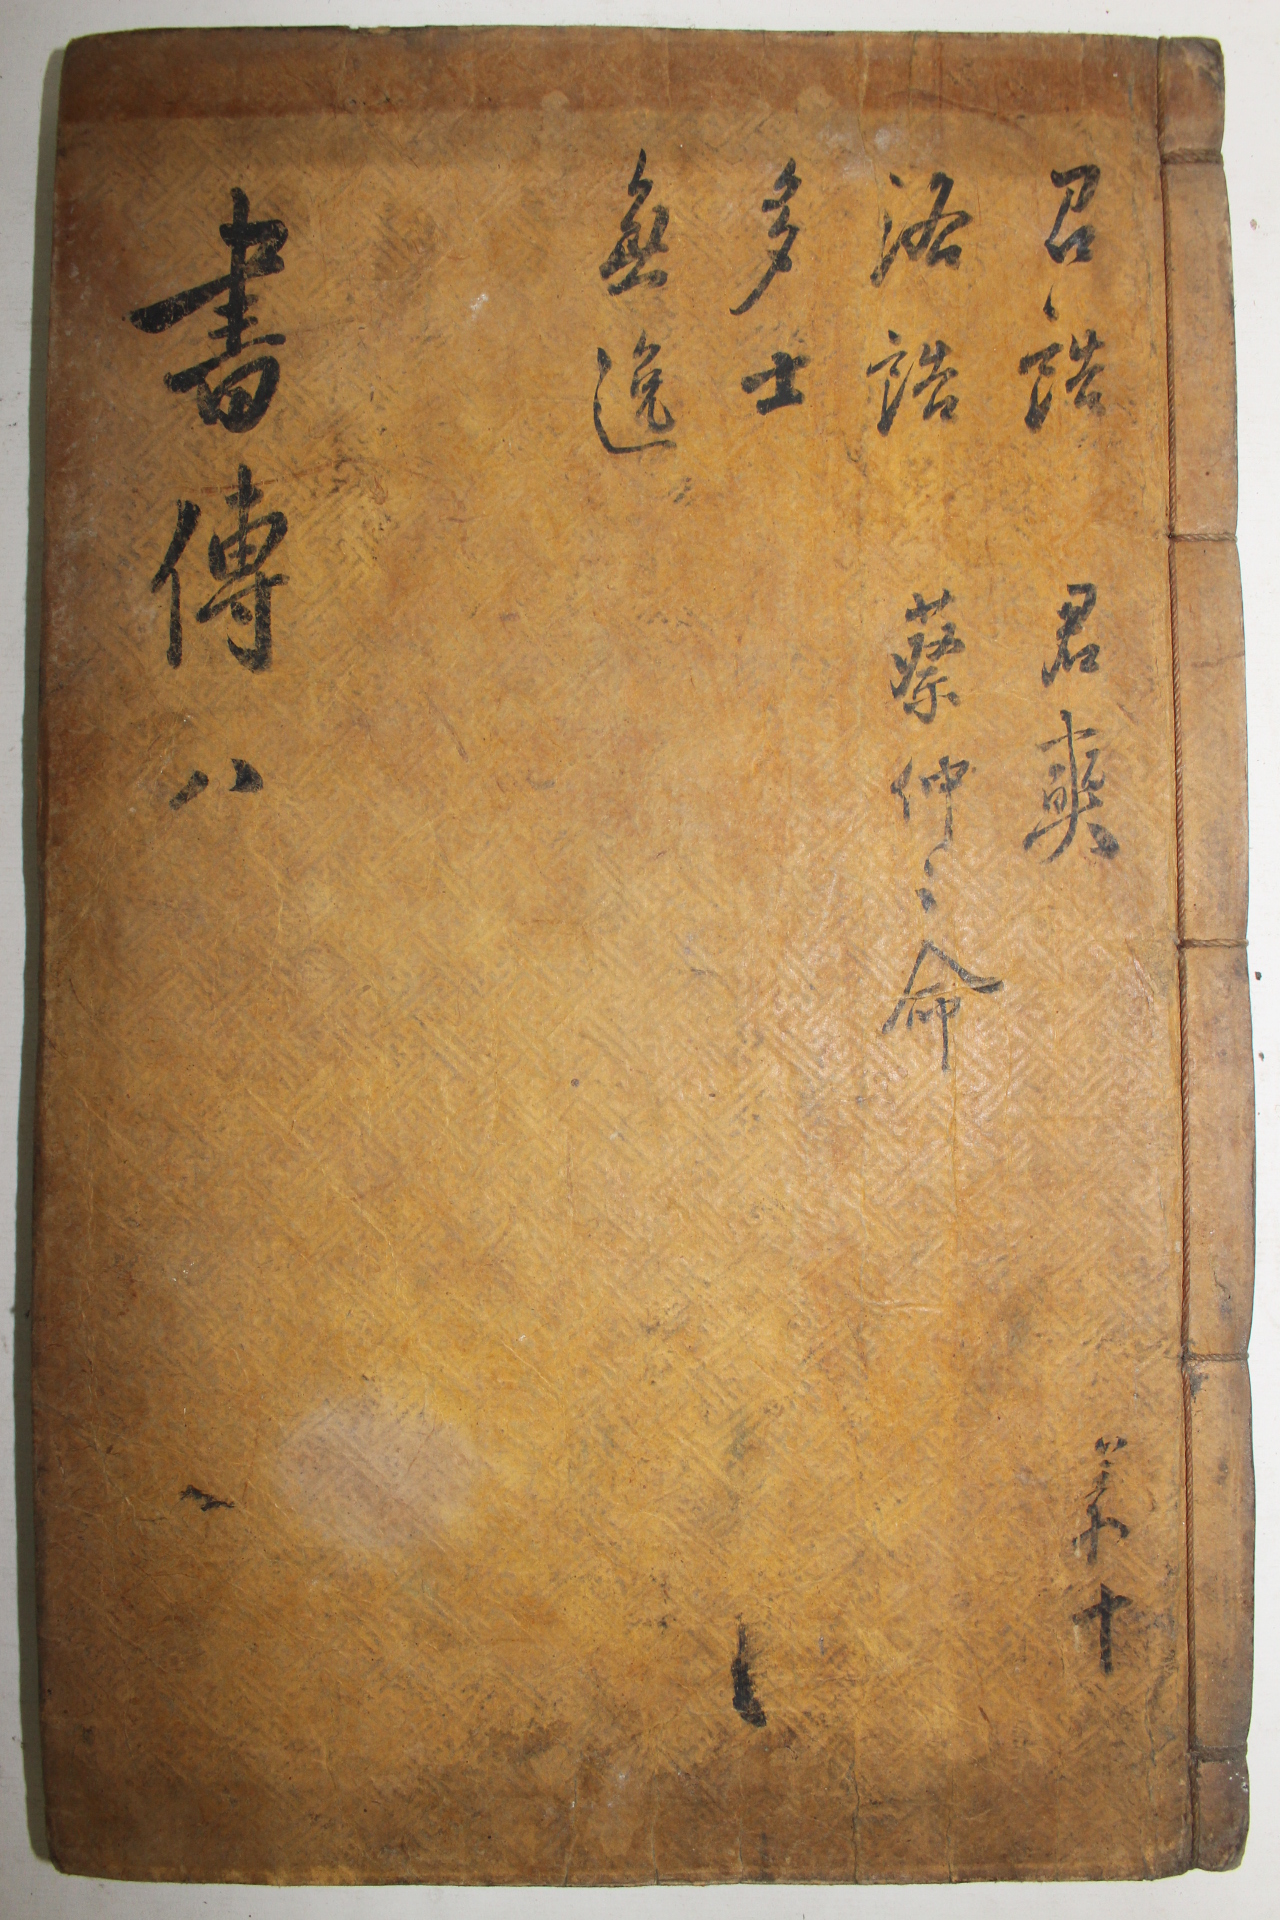 召誥
洛誥
多士
無逸
君奭
蔡仲之命
書傳 八
第十